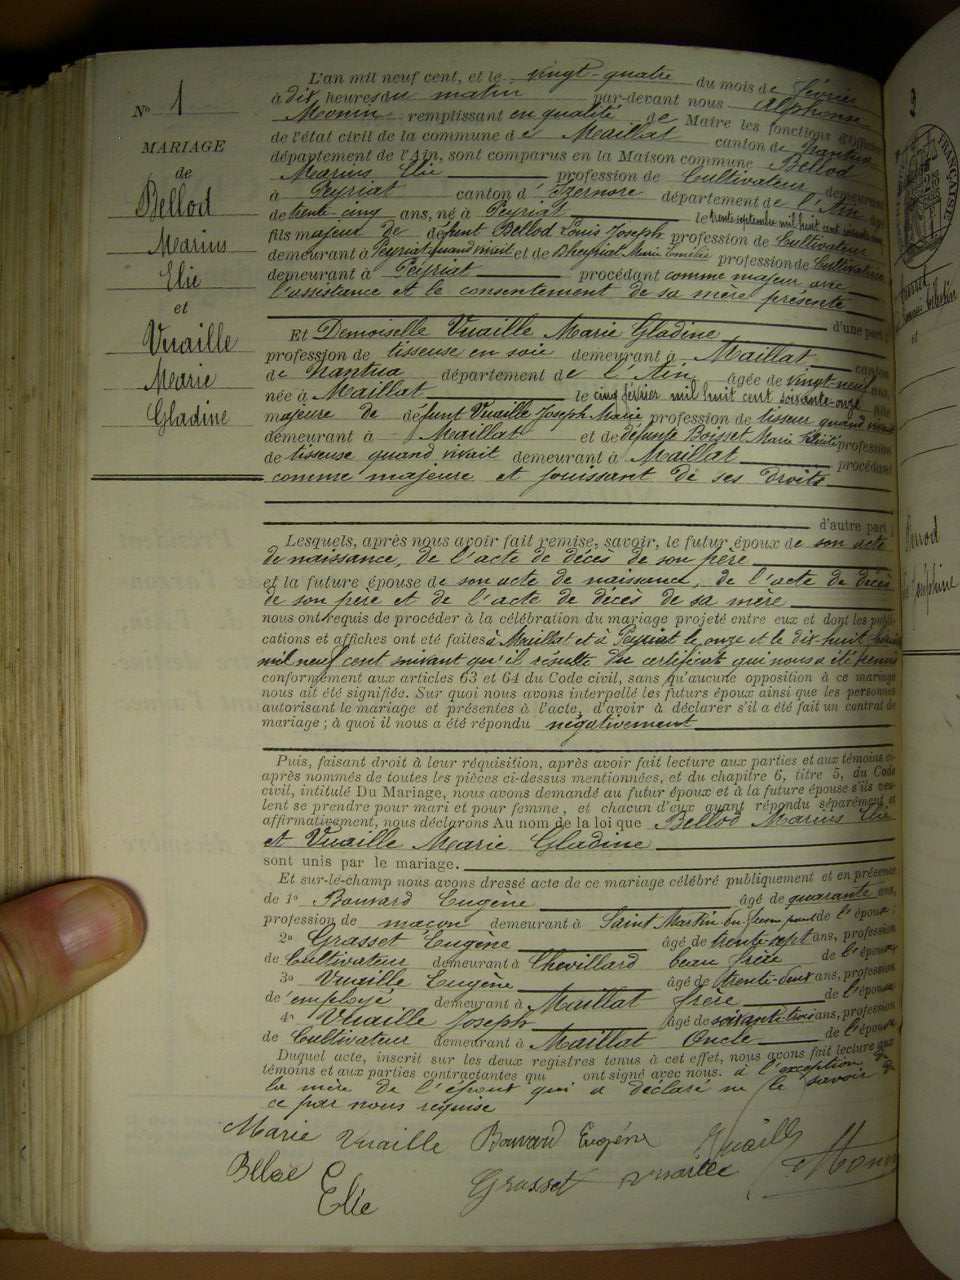 N° 1
MARIAGE
de
Bellod
Marius
Elie
et
Vuaille
Marie
Gladine
L'an mil neuf cent, et le vingt-quatre du mois de février
à dix heures du matin par-devant nous Alphonse
Monin remplissant en qualité de Maire les fonctions d'officier
de l'état civil de la commune de Maillat canton de Nantua
département de l'Ain, sont comparus en la Maison commune Bellod
Marius Elie profession de Cultivateur demeurant
à Peyriat canton d'Izernore département de l'Ain âgé
de trente-cinq ans, né à Peyriat le trente septembre mil huit cent soixante
fils majeur de défunt Bellod Louis Joseph profession de Cultivateur
demeurant à Peyriat quand vivait et de Marie Emélie profession de Cultivatrice
demeurant à Peyriat procédant comme majeur avec
l'assistance et le consentement de sa mère présente
d'une part ;
Et Demoiselle Vuaille Marie Gladine
profession de tisseuse en soie demeurant à Maillat canton
de Nantua département de l'Ain âgée de vingt-neuf ans,
née à Maillat le cinq février mil huit cent soixante-onze fille
majeure de défunt Vuaille Joseph Marie profession de tisseur quand vivait
demeurant à Maillat et de défunte Boisset Marie profession
de tisseuse quand vivait demeurant à Maillat procédant
comme majeure et jouissant de ses droits
d'autre part ;
Lesquels, après nous avoir fait remise, savoir, le futur époux de son acte
de naissance, de l'acte de décès de son père
et la future épouse de son acte de naissance, de l'acte de décès
de son père et de l'acte de décès de sa mère
nous ont requis de procéder à la célébration du mariage projeté entre eux et dont les publi-
cations et affiches ont été faites à Maillat et à Peyriat le onze et le dix huit février
mil neuf cent suivant qu'il résulte du certificat qui nous a été remis
conformément aux articles 63 et 64 du Code civil, sans qu'aucune opposition à ce mariage
nous ait été signifiée. Sur quoi nous avons interpellé les futurs époux ainsi que les personnes
autorisant le mariage et présentes à l'acte, d'avoir à déclarer s'il a été fait un contrat de
mariage ; à quoi il nous a été répondu négativement
Puis, faisant droit à leur réquisition, après avoir fait lecture aux parties et aux témoins ci-
après nommés de toutes les pièces ci-dessus mentionnées, et du chapitre 6, titre 5, du Code
civil, intitulé Du Mariage, nous avons demandé au futur époux et à la future épouse s'ils veu-
lent se prendre pour mari et pour femme, et chacun d'eux ayant répondu séparément et
affirmativement, nous déclarons Au nom de la loi que Bellod Marius Elie
et Vuaille Marie Gladine
sont unis par le mariage.
Et sur-le-champ nous avons dressé acte de ce mariage célébré publiquement et en présence
de 1° Bouvard Eugène âgé de quarante ans,
profession de maçon demeurant à Saint Martin du de l'épouse ;
2° Grasset Eugène âgé de trente-sept ans, profession
de Cultivateur demeurant à Chevillard beau frère de l'épouse ;
3° Vuaille Eugène âgé de trente-deux ans, profession
de employé demeurant à Maillat frère de l'épouse
4° Vuaille Joseph âgé de soixante-trois ans, profession
de Cultivateur demeurant à Maillat Oncle de l'épouse
Duquel acte, inscrit sur les deux registres tenus à cet effet, nous avons fait lecture aux
témoins et aux parties contractantes qui ont signé avec nous. à l'exception de
la mère de l'époux qui a déclaré ne le savoir de
ce par nous requise
Marie Vuaille Bouvard Eugène Vuaille
Bellod E Grasset Vuaille Monin
Elie
3
et
Joséphine